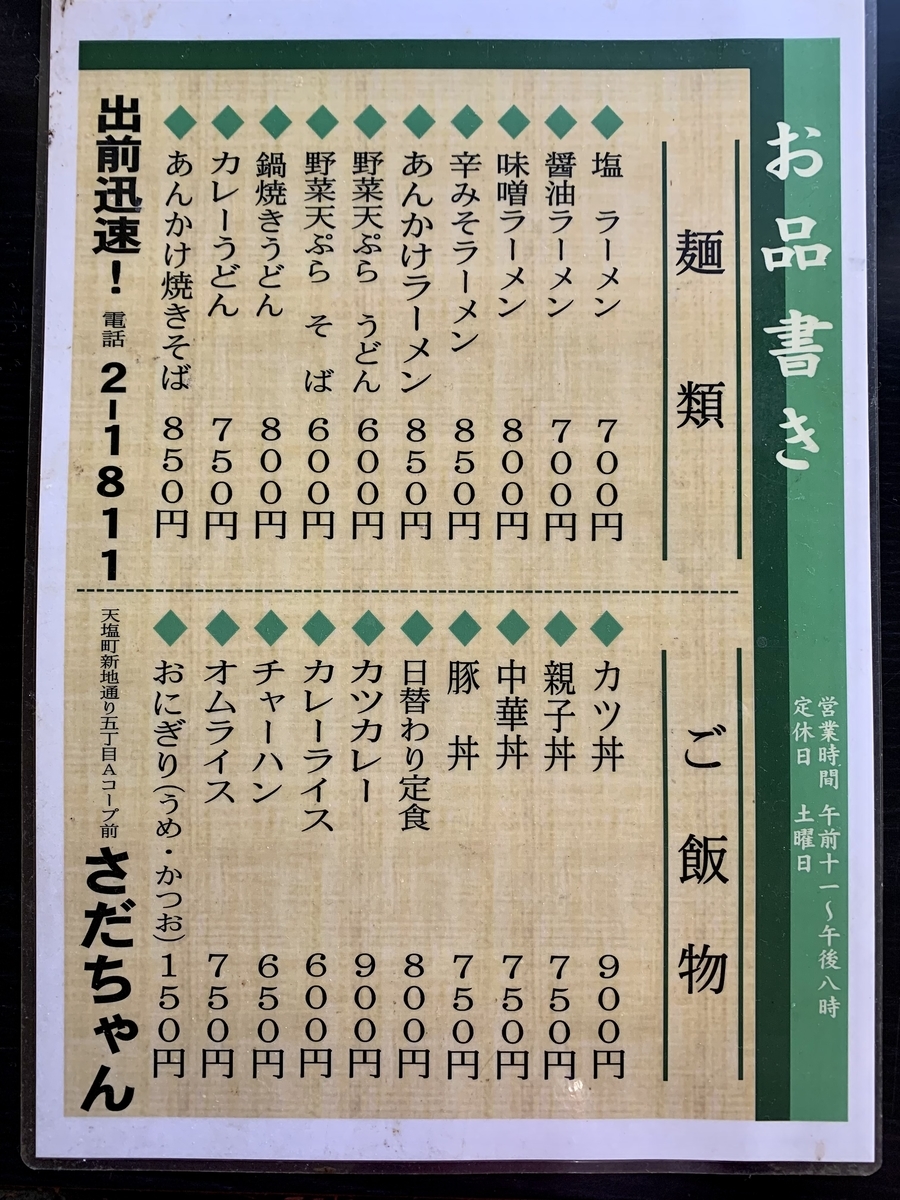 お品書き
営業時間 午前十一～午後八時
定休日 土曜日
麺類
塩 ラーメン 700円
醤油ラーメン 700円
味噌ラーメン 800円
辛みそラーメン 850円
あんかけラーメン 850円
野菜天ぷら うどん 600円
野菜天ぷら そ ば 600円
鍋焼きうどん 800円
カレーうどん 750円
あんかけ焼きそば 850円
ご飯物
カツ丼 900円
親子丼 750円
中華丼 750円
豚 丼 750円
日替わり定食 800円
カツカレー 900円
カレーライス 600円
チャーハン 650円
オムライス 750円
おにぎり(うめ・かつお) 150円
出前迅速! 電話 2-1811
天塩町新地通り五丁目Aコープ前 さだちゃん